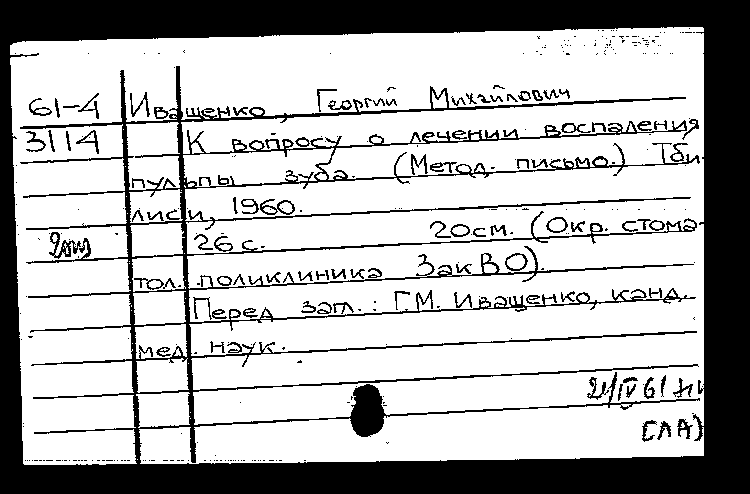 61-4 Иващенко, Георгий Михайлович
3114 К вопросу о лечении воспаления
пульпы зуба. (Метод. письмо.) Тби-
лиси, 1960.
26 с. 20см. (Окр. стома-
тол. поликлиника ЗакВО).
Перед загл.: Г.М. Иващенко, канд.
мед. наук.
[ЛА]